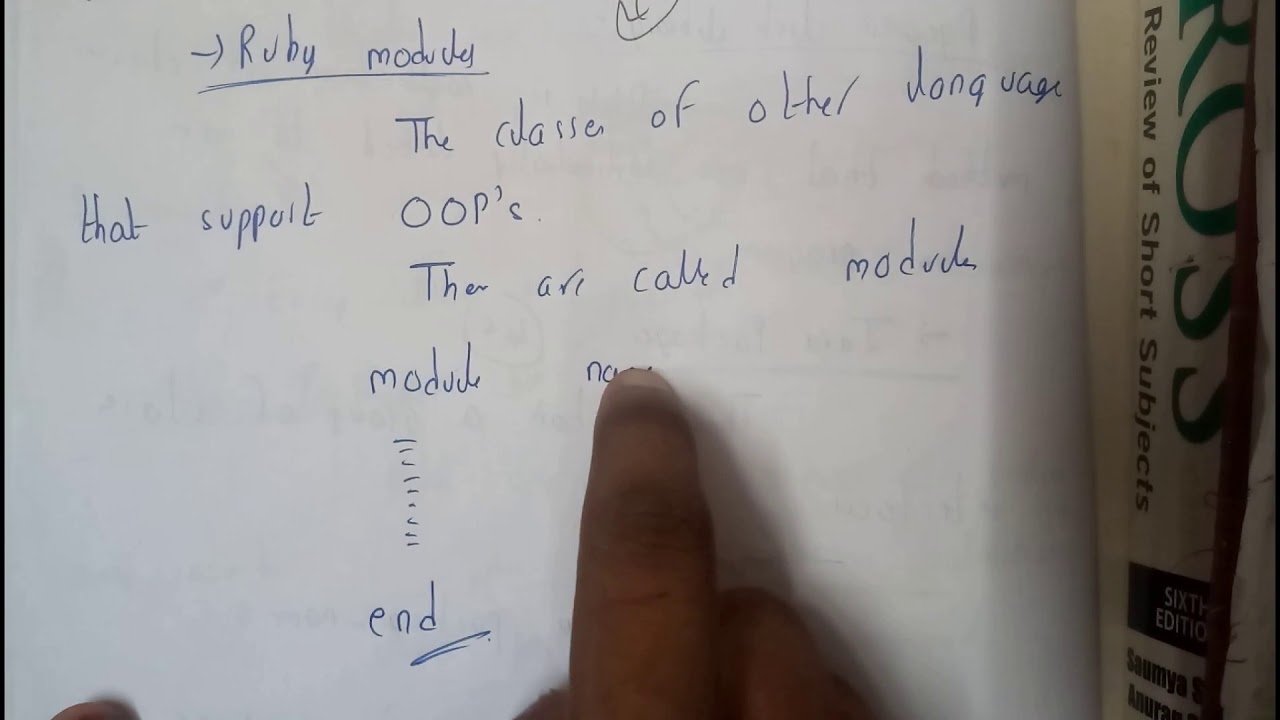 → Ruby modules
The classes of other language
that support OOP's.
These are called modules
module
end
ROSS
Review of Short Subjects
SIXTH
EDITIO
Saumya S
Anura